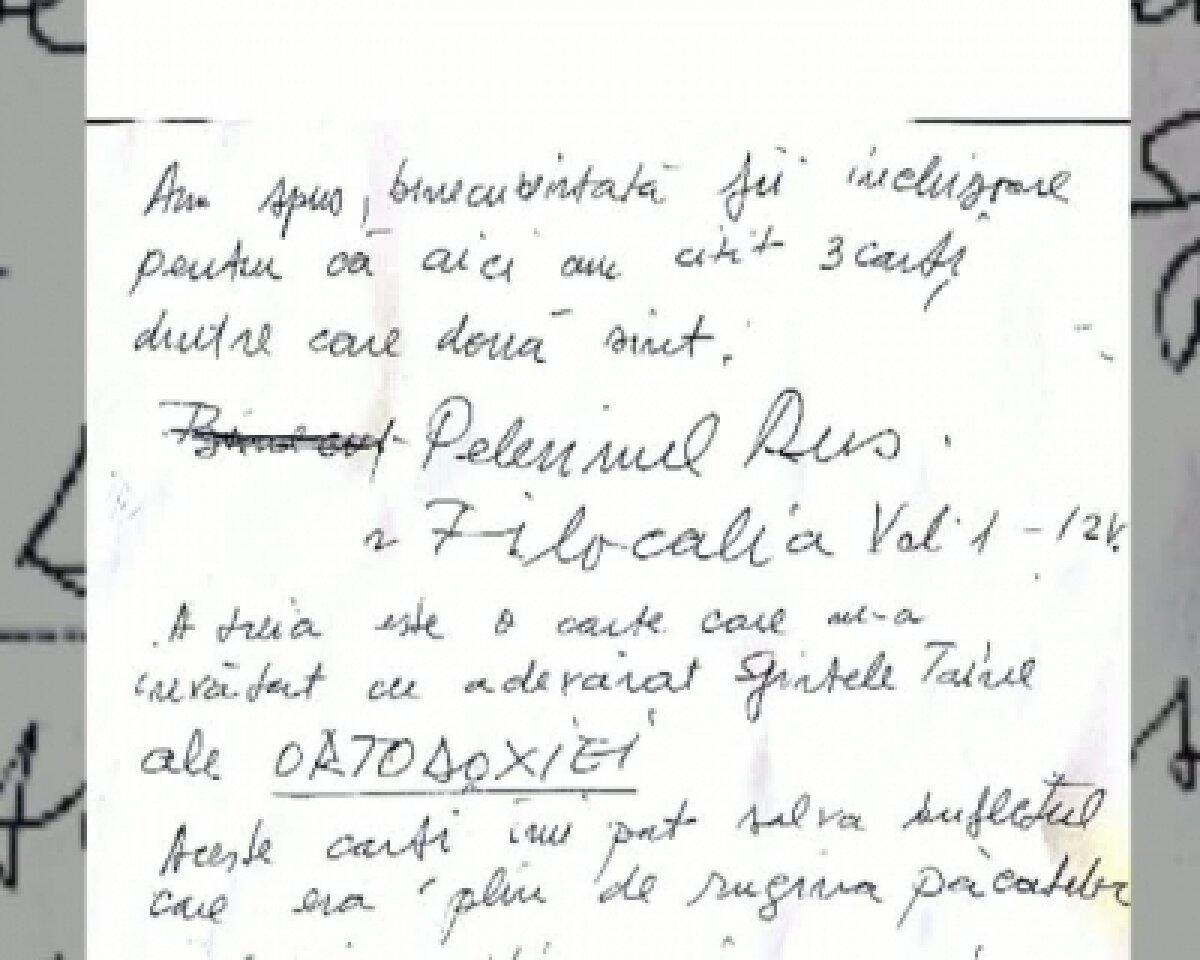 Am spus, binecuvîntată fii închisoare
pentru că aici am citit 3 cărți
dintre care două sînt:
Pelerinul Rus.
Filocalia Vol. 1 - 12 V.
A treia este o carte care m-a
învățat cu adevărat Sfintele Taine
ale ORTODOXIEI
Aceste cărți îmi pot salva sufletul
care era plin de rugina păcatelor